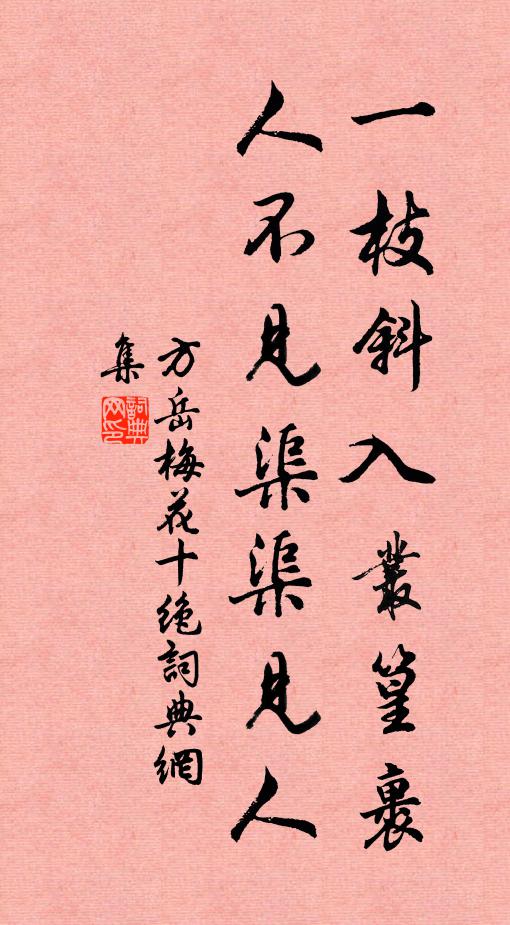 一枝斜入叢篁裹
人不見渠渠見人
方岳梅花十絶詞典網
集
詞典
网印